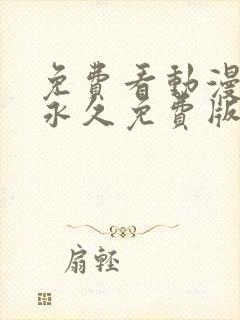 免費看動漫
永久免費版
扇輕